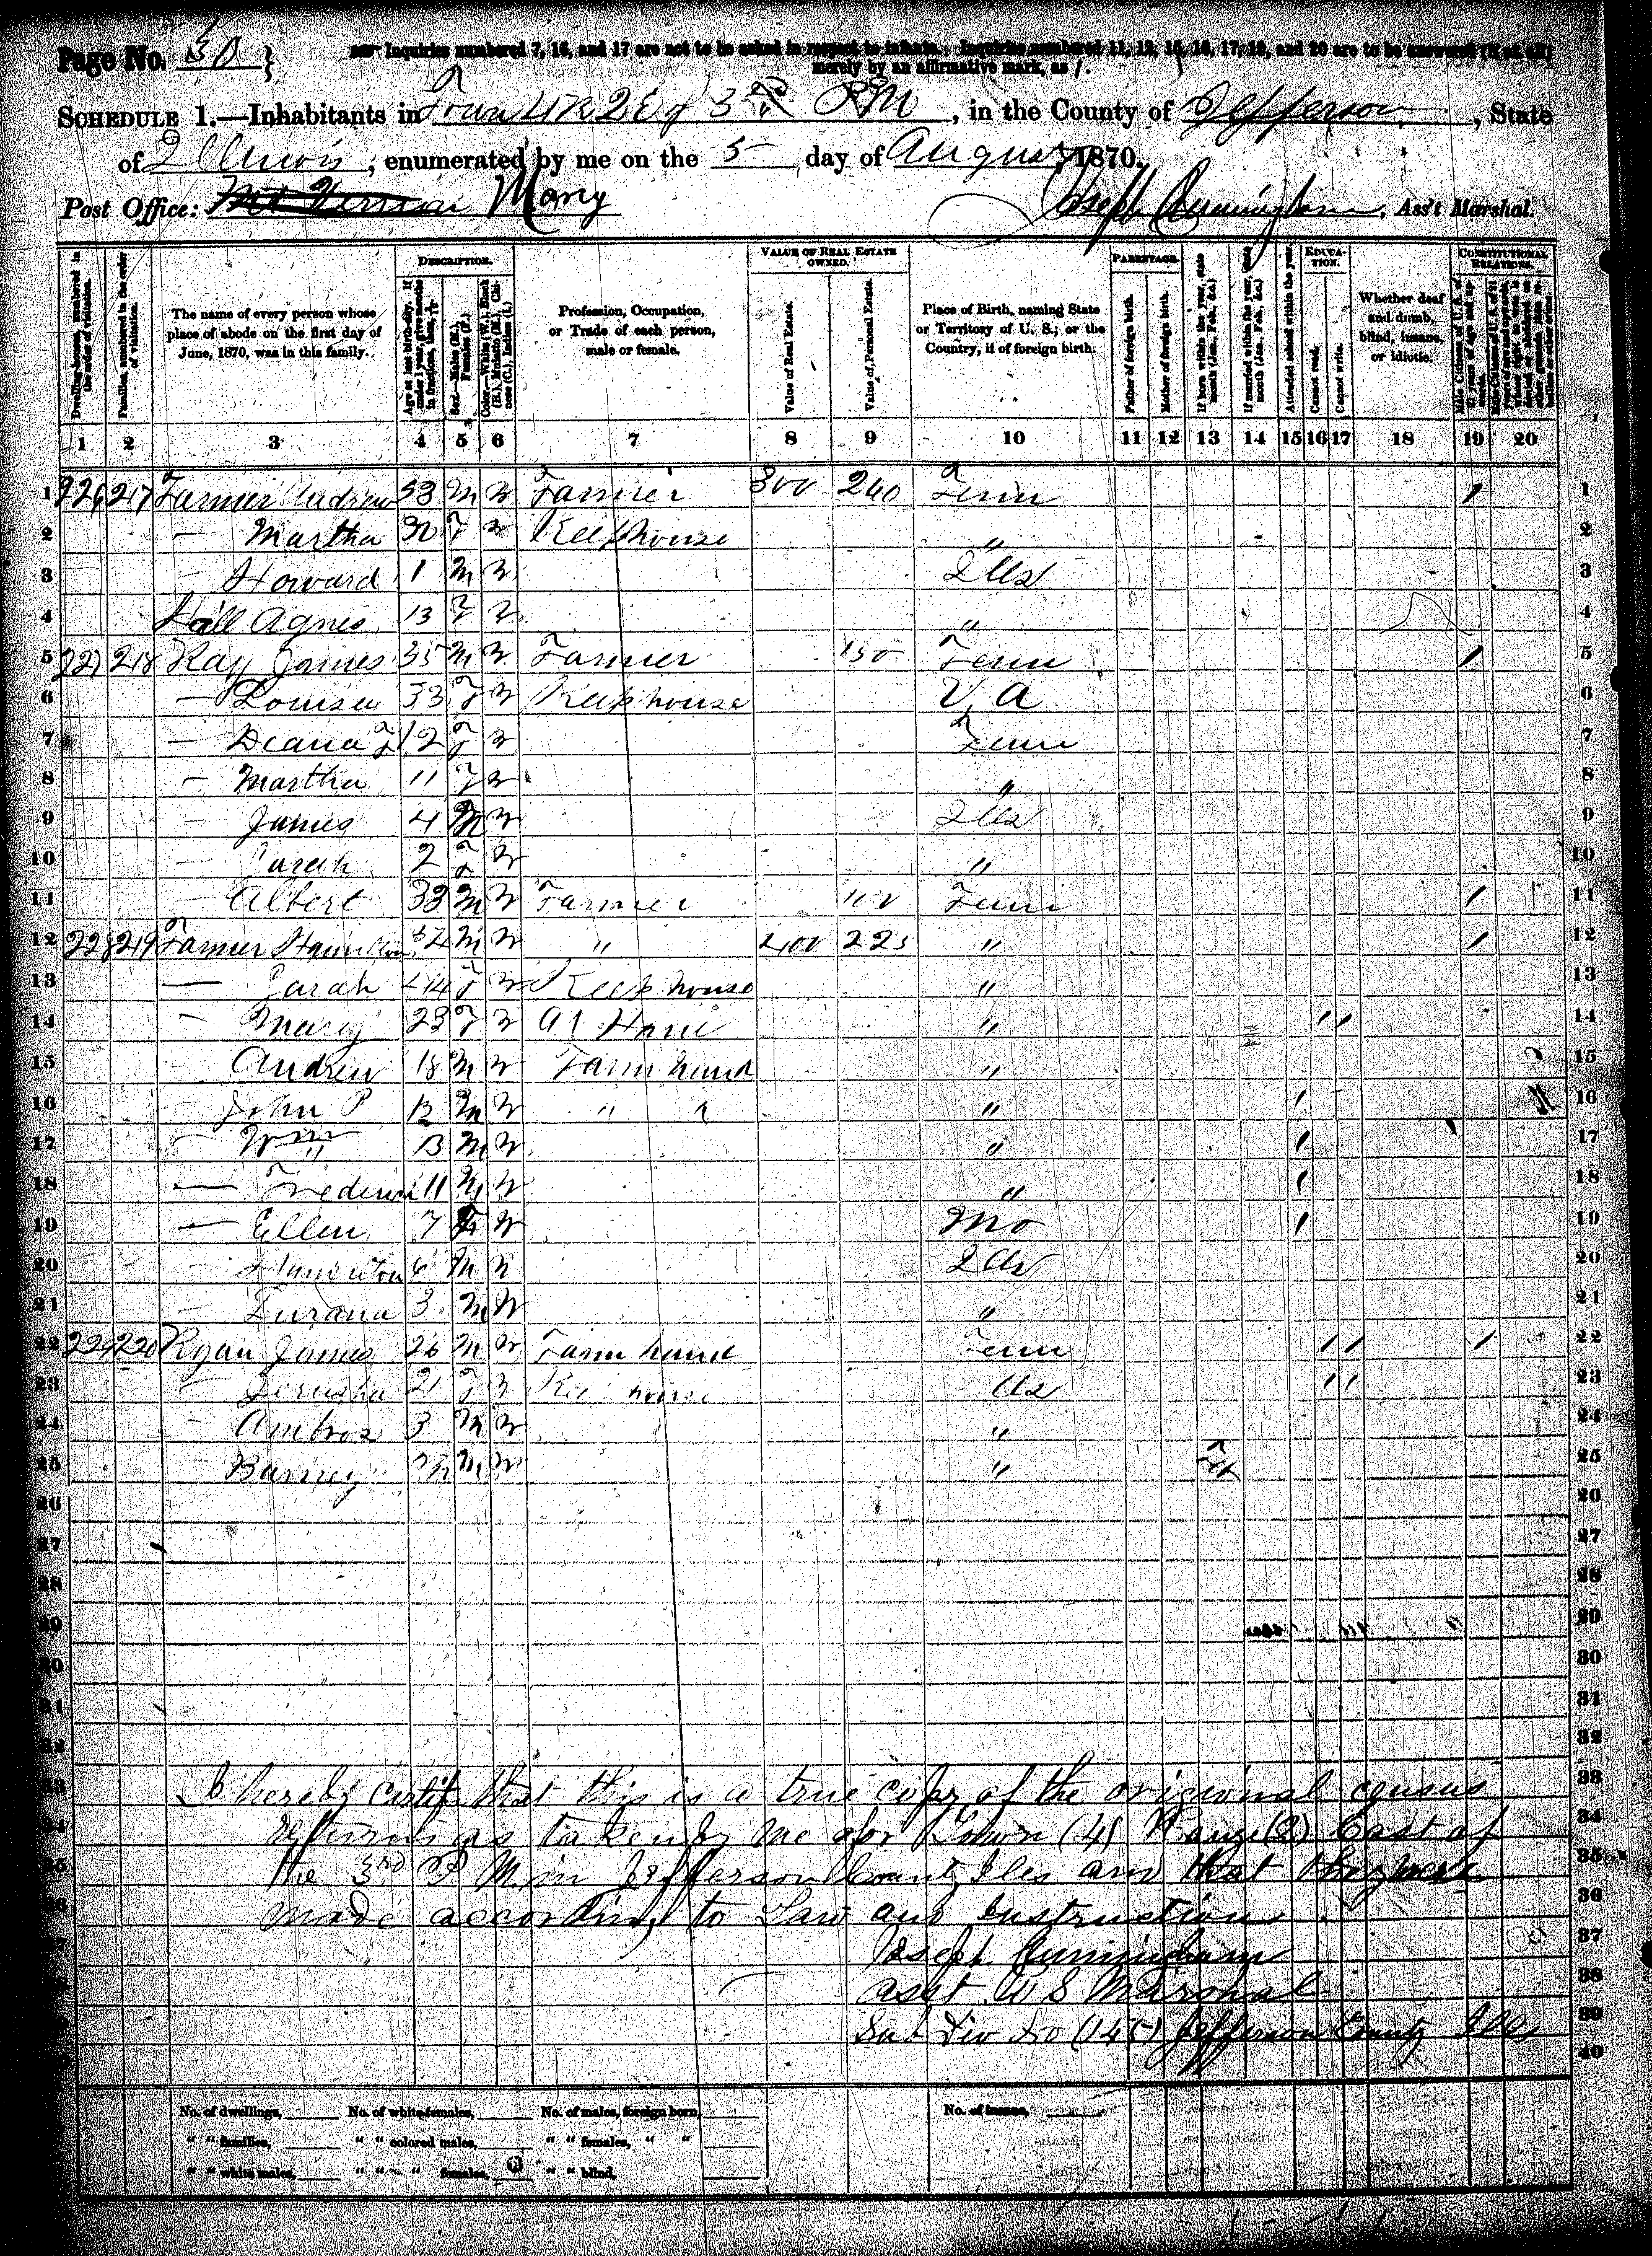 Page No. 30
Inquiries numbered 7, 16, and 17 are not to be asked in respect to infants. Inquiries numbered 11, 12, 15, 16, 17, 19, and 20 are to be answered (if at all)
merely by an affirmative mark, as /.
SCHEDULE 1.—Inhabitants in Town 4 R 2 E of 3rd PM, in the County of Jefferson, State
of Illinois, enumerated by me on the 5 day of August, 1870.
Post Office: Mt Vernon Joseph Cunningham, Ass't Marshal.
DESCRIPTION. VALUE OF REAL ESTATE OWNED. PARENTAGE. EDUCATION. CONSTITUTIONAL RELATIONS.
Dwelling-houses, numbered in the order of visitation.
Families, numbered in the order of visitation.
The name of every person whose place of abode on the first day of June, 1870, was in this family.
Profession, Occupation, or Trade of each person, male or female.
Value of Real Estate.
Value of Personal Estate.
Place of Birth, naming State or Territory of U. S.; or the Country, if of foreign birth.
Father of foreign birth.
Mother of foreign birth.
If born within the year, state month (Jan., Feb., &c.)
If married within the year, state month (Jan., Feb., &c.)
Attended school within the year.
Cannot read.
Cannot write.
Whether deaf and dumb, blind, insane, or idiotic.
1 2 3 4 5 6 7 8 9 10 11 12 13 14 15 16 17 18 19 20
1 226 217 Farmer Andrew 53 M W Farmer 300 240 Tenn / 1
2 — Martha 30 F W Keep house " 2
3 — Howard 1 M W Ills 3
4 Hall Agnes 13 F W " 4
5 227 218 Ray James 35 M W Farmer 150 Tenn / 5
6 — Louisa 33 F W Keep house V A 6
7 — Deana F 12 F W Tenn 7
8 — Martha 11 F W " 8
9 — James 4 M W Ills 9
10 — Sarah 2 F W " 10
11 Albert 33 M W Farmer 100 Tenn / 11
12 228 219 Farmer Hamilton 52 M W " 400 225 " / 12
13 — Sarah 44 F W Keep house " 13
14 — Mary 23 F W At Home " / / 14
15 — Andrew 18 M W Farm hand " 15
16 — John P M W " " " / 16
17 — Wm 13 M W " / 17
18 — Frederick 11 M W " / 18
19 — Ellen 7 F W Mo / 19
20 — Hamilton 6 M W Ills 20
21 — 3 M W " 21
22 229 220 Ryan James 26 M W Farm hand Tenn / / / 22
23 — Jerusha 21 F W Keep house Ills / / 23
24 — Ambros 3 M W " 24
25 Barney M W " 25
26 26
27 27
28 28
29 29
30 30
31 31
32 32
33 I hereby certify that this is a true copy of the origional census 33
34 returns as taken by me for Town (4) Range (2) East of 34
35 the 3rd P M in Jefferson County Ills and that they were 35
36 made according to Law and Instruction 36
37 Joseph Cunningham 37
38 Asst U S Marshal 38
39 Sub Div No (145) Jefferson County Ills 39
40
No. of dwellings, No. of white females, No. of males, foreign born, No. of insane,
" " families, " " colored males, " " females, " "
" " white males, " " " females, " " blind,